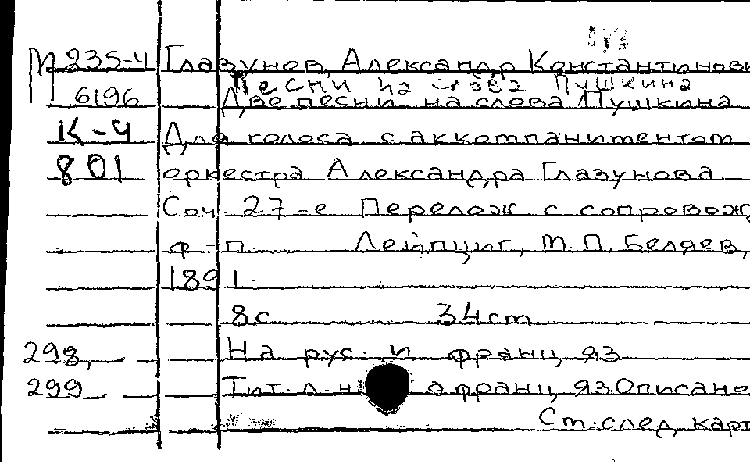 М 235-4 Глазунов, Александр Константинови
Песни на слова Пушкина
6196 Две песни на слова Пушкина
К-4 Для голоса с аккомпаниментом
801 оркестра Александра Глазунова
Соч 27-е Перелож с сопровож
ф-п. Лейпциг, М. П. Беляев,
1891.
8с 34 cm
298, На рус. и франц яз
299 Тит. л. н франц, яз Описане
Ст. след. карт